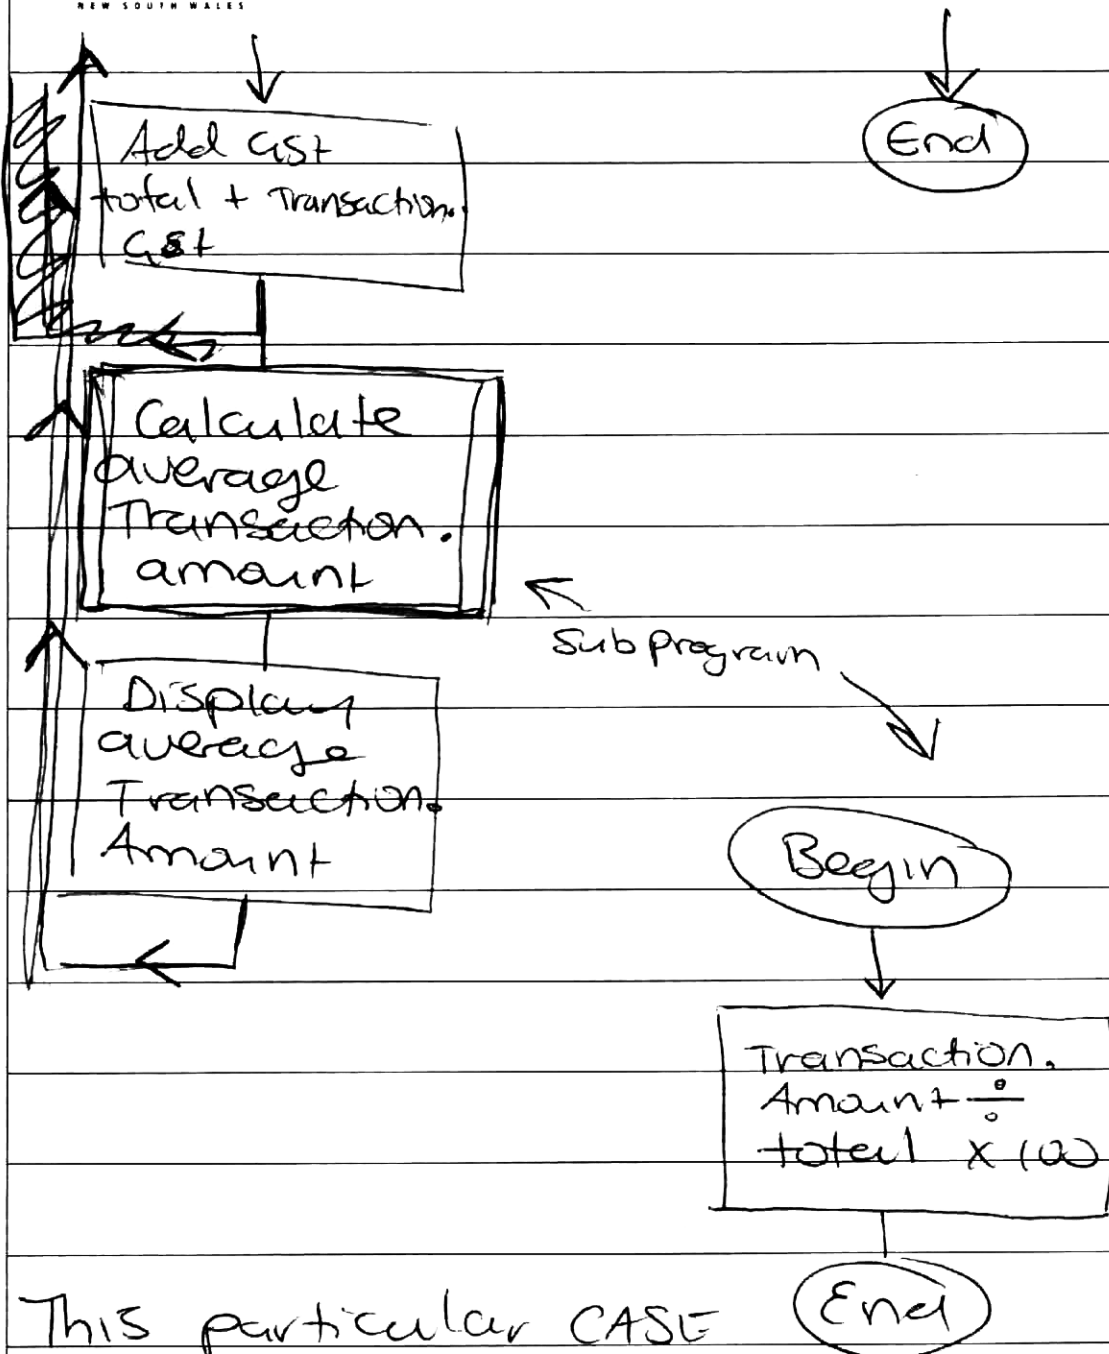 NEW SOUTH WALES
Add GST
total + Transaction.
GST
End
Calculate
average
Transaction.
amount
Subprogram
Display
average
Transaction.
Amount
Begin
Transaction.
Amount ÷
total x 100
End
This particular CASE